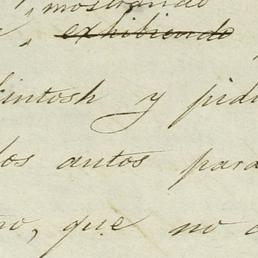 mostrando
exhibiendo
intosh y pidi
los autos para
no, que no